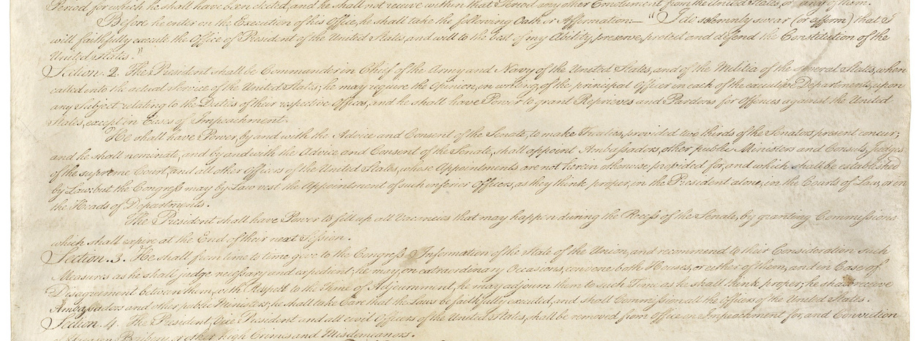 Period for which he shall have been elected, and he shall not receive within that Period any other Emolument from the United States, or any of them.
Before he enter on the Execution of his Office, he shall take the following Oath or Affirmation:— "I do solemnly swear (or affirm) that I
will faithfully execute the Office of President of the United States, and will to the best of my Ability, preserve, protect and defend the Constitution of the
United States."
Section. 2. The President shall be Commander in Chief of the Army and Navy of the United States, and of the Militia of the several States, when
called into the actual Service of the United States; he may require the Opinion, in writing, of the principal Officer in each of the executive Departments, upon
any Subject relating to the Duties of their respective Offices, and he shall have Power to grant Reprieves and Pardons for Offences against the United
States, except in Cases of Impeachment.
He shall have Power, by and with the Advice and Consent of the Senate, to make Treaties, provided two thirds of the Senators present concur;
and he shall nominate, and by and with the Advice and Consent of the Senate, shall appoint Ambassadors, other public Ministers and Consuls, Judges
of the supreme Court, and all other Officers of the United States, whose Appointments are not herein otherwise provided for, and which shall be established
by Law: but the Congress may by Law vest the Appointment of such inferior Officers, as they think proper, in the President alone, in the Courts of Law, or in
the Heads of Departments.
The President shall have Power to fill up all Vacancies that may happen during the Recess of the Senate, by granting Commissions
which shall expire at the End of their next Session.
Section. 3. He shall from time to time give to the Congress Information of the State of the Union, and recommend to their Consideration such
Measures as he shall judge necessary and expedient; he may, on extraordinary Occasions, convene both Houses, or either of them, and in Case of
Disagreement between them, with Respect to the Time of Adjournment, he may adjourn them to such Time as he shall think proper; he shall receive
Ambassadors and other public Ministers; he shall take Care that the Laws be faithfully executed, and shall Commission all the Officers of the United States.
Section. 4. The President, Vice President and all civil Officers of the United States, shall be removed from Office on Impeachment for, and Conviction
of, Treason, Bribery, or other high Crimes and Misdemeanors.